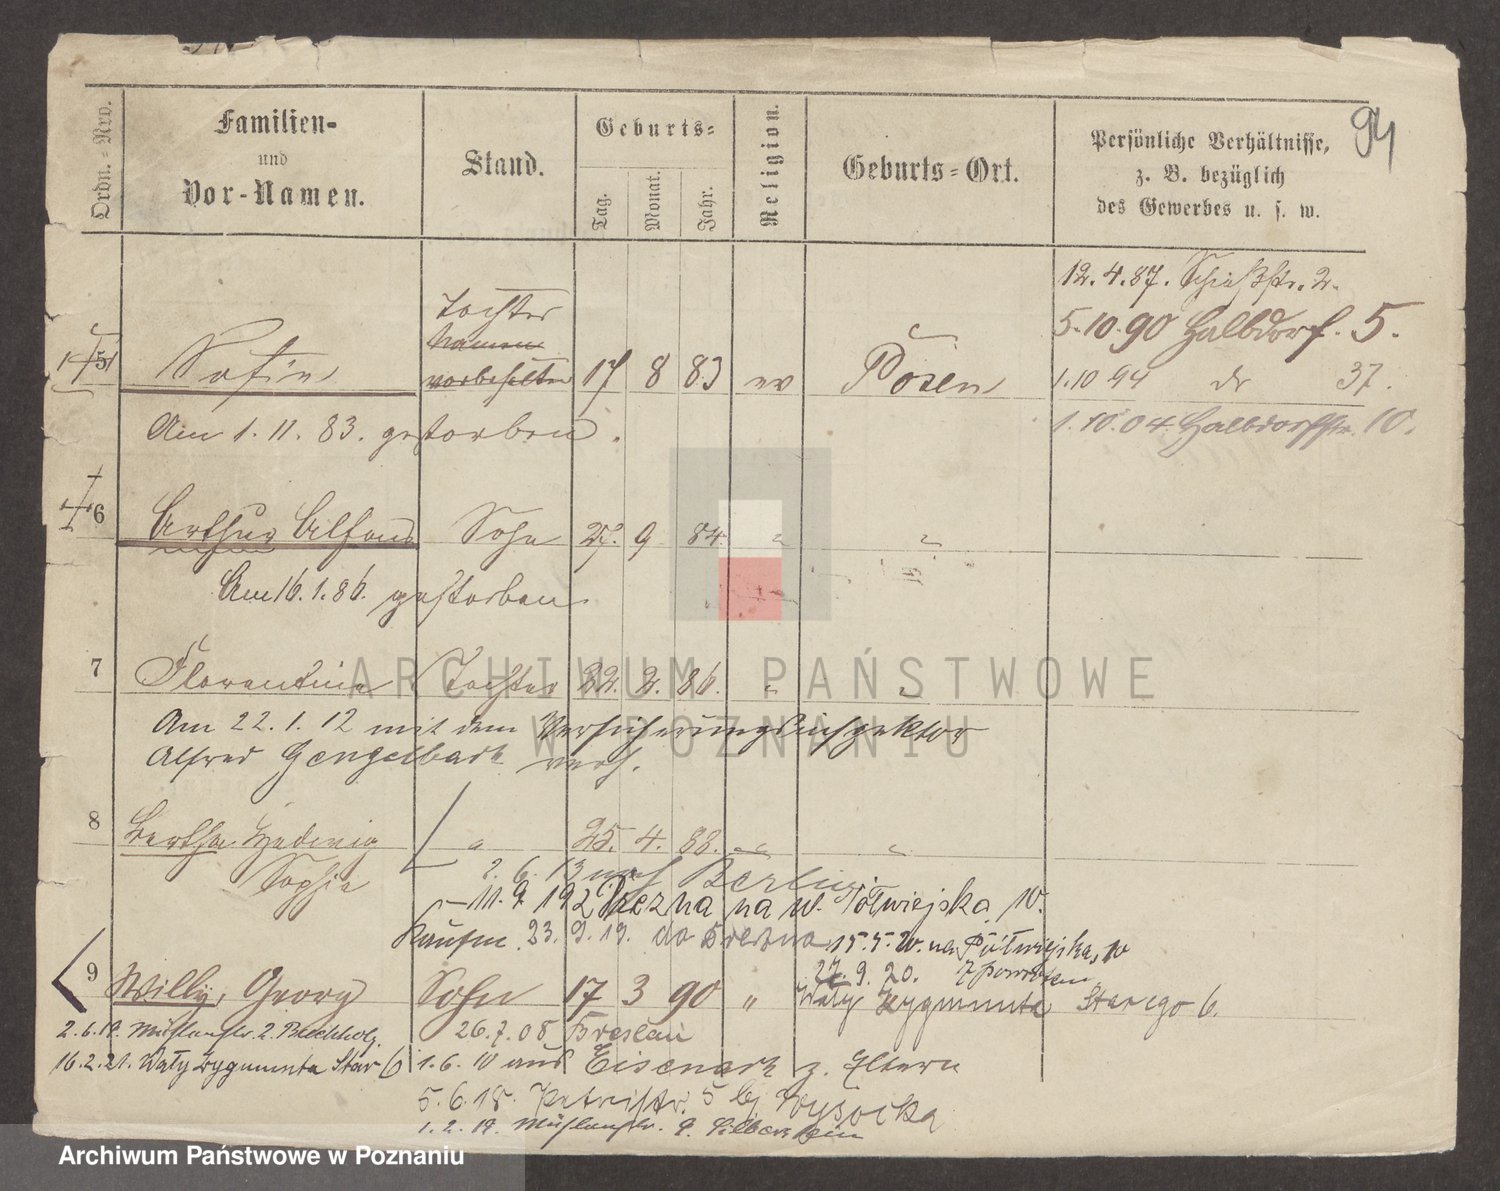 94
Ordn.=Nro.
Familien-
und
Vor-Namen.
Stand.
Geburts=
Tag.
Monat.
Jahr.
Religion.
Geburts=Ort.
Persönliche Verhältnisse,
z. B. bezüglich
des Gewerbes u. s. w.
12. 4. 87. Schießstr. 2.
5. 10. 90 Halbdorf. 5.
1. 10 94 do 37.
1. 10. 04. Halbdorfstr. 10.
5 Tochter
Namen
vorbehalten 17 8 83 ev Posen
Am 1. 11. 83. gestorben.
6 Arthur Alfons Sohn 27. 9 84. " "
Am 16. 1. 86. gestorben
7 Florentine Tochter 22. 2. 86. " "
Am 22. 1. 12 mit dem Versicherungsinspektor
Alfred Gengelback verh.
8 Bertha Hedwig
Sophie " 25. 4. 88. " "
2. 6. 13 nach Berlin
11. 9. 192 na w. Półwiejska 10.
Kaufm. 23. 9. 19. do 15. 5. 20. na Półwiejska, 10
9 Willy, Georg Sohn 17 3 90 "
27. 9. 20.
Wały Zygmunta Starego 6.
2. 6. 19. 2.
26. 7. 08 Breslau
16. 2. 21. Wały Zygmunta Star 6
1. 6. 10 aus Eisenach z. Eltern
5. 6. 18. Petristr. 5 bj Wysocka
1. 2. 19. Silberstein
ARCHIWUM PAŃSTWOWE
W POZNANIU
Archiwum Państwowe w Poznaniu